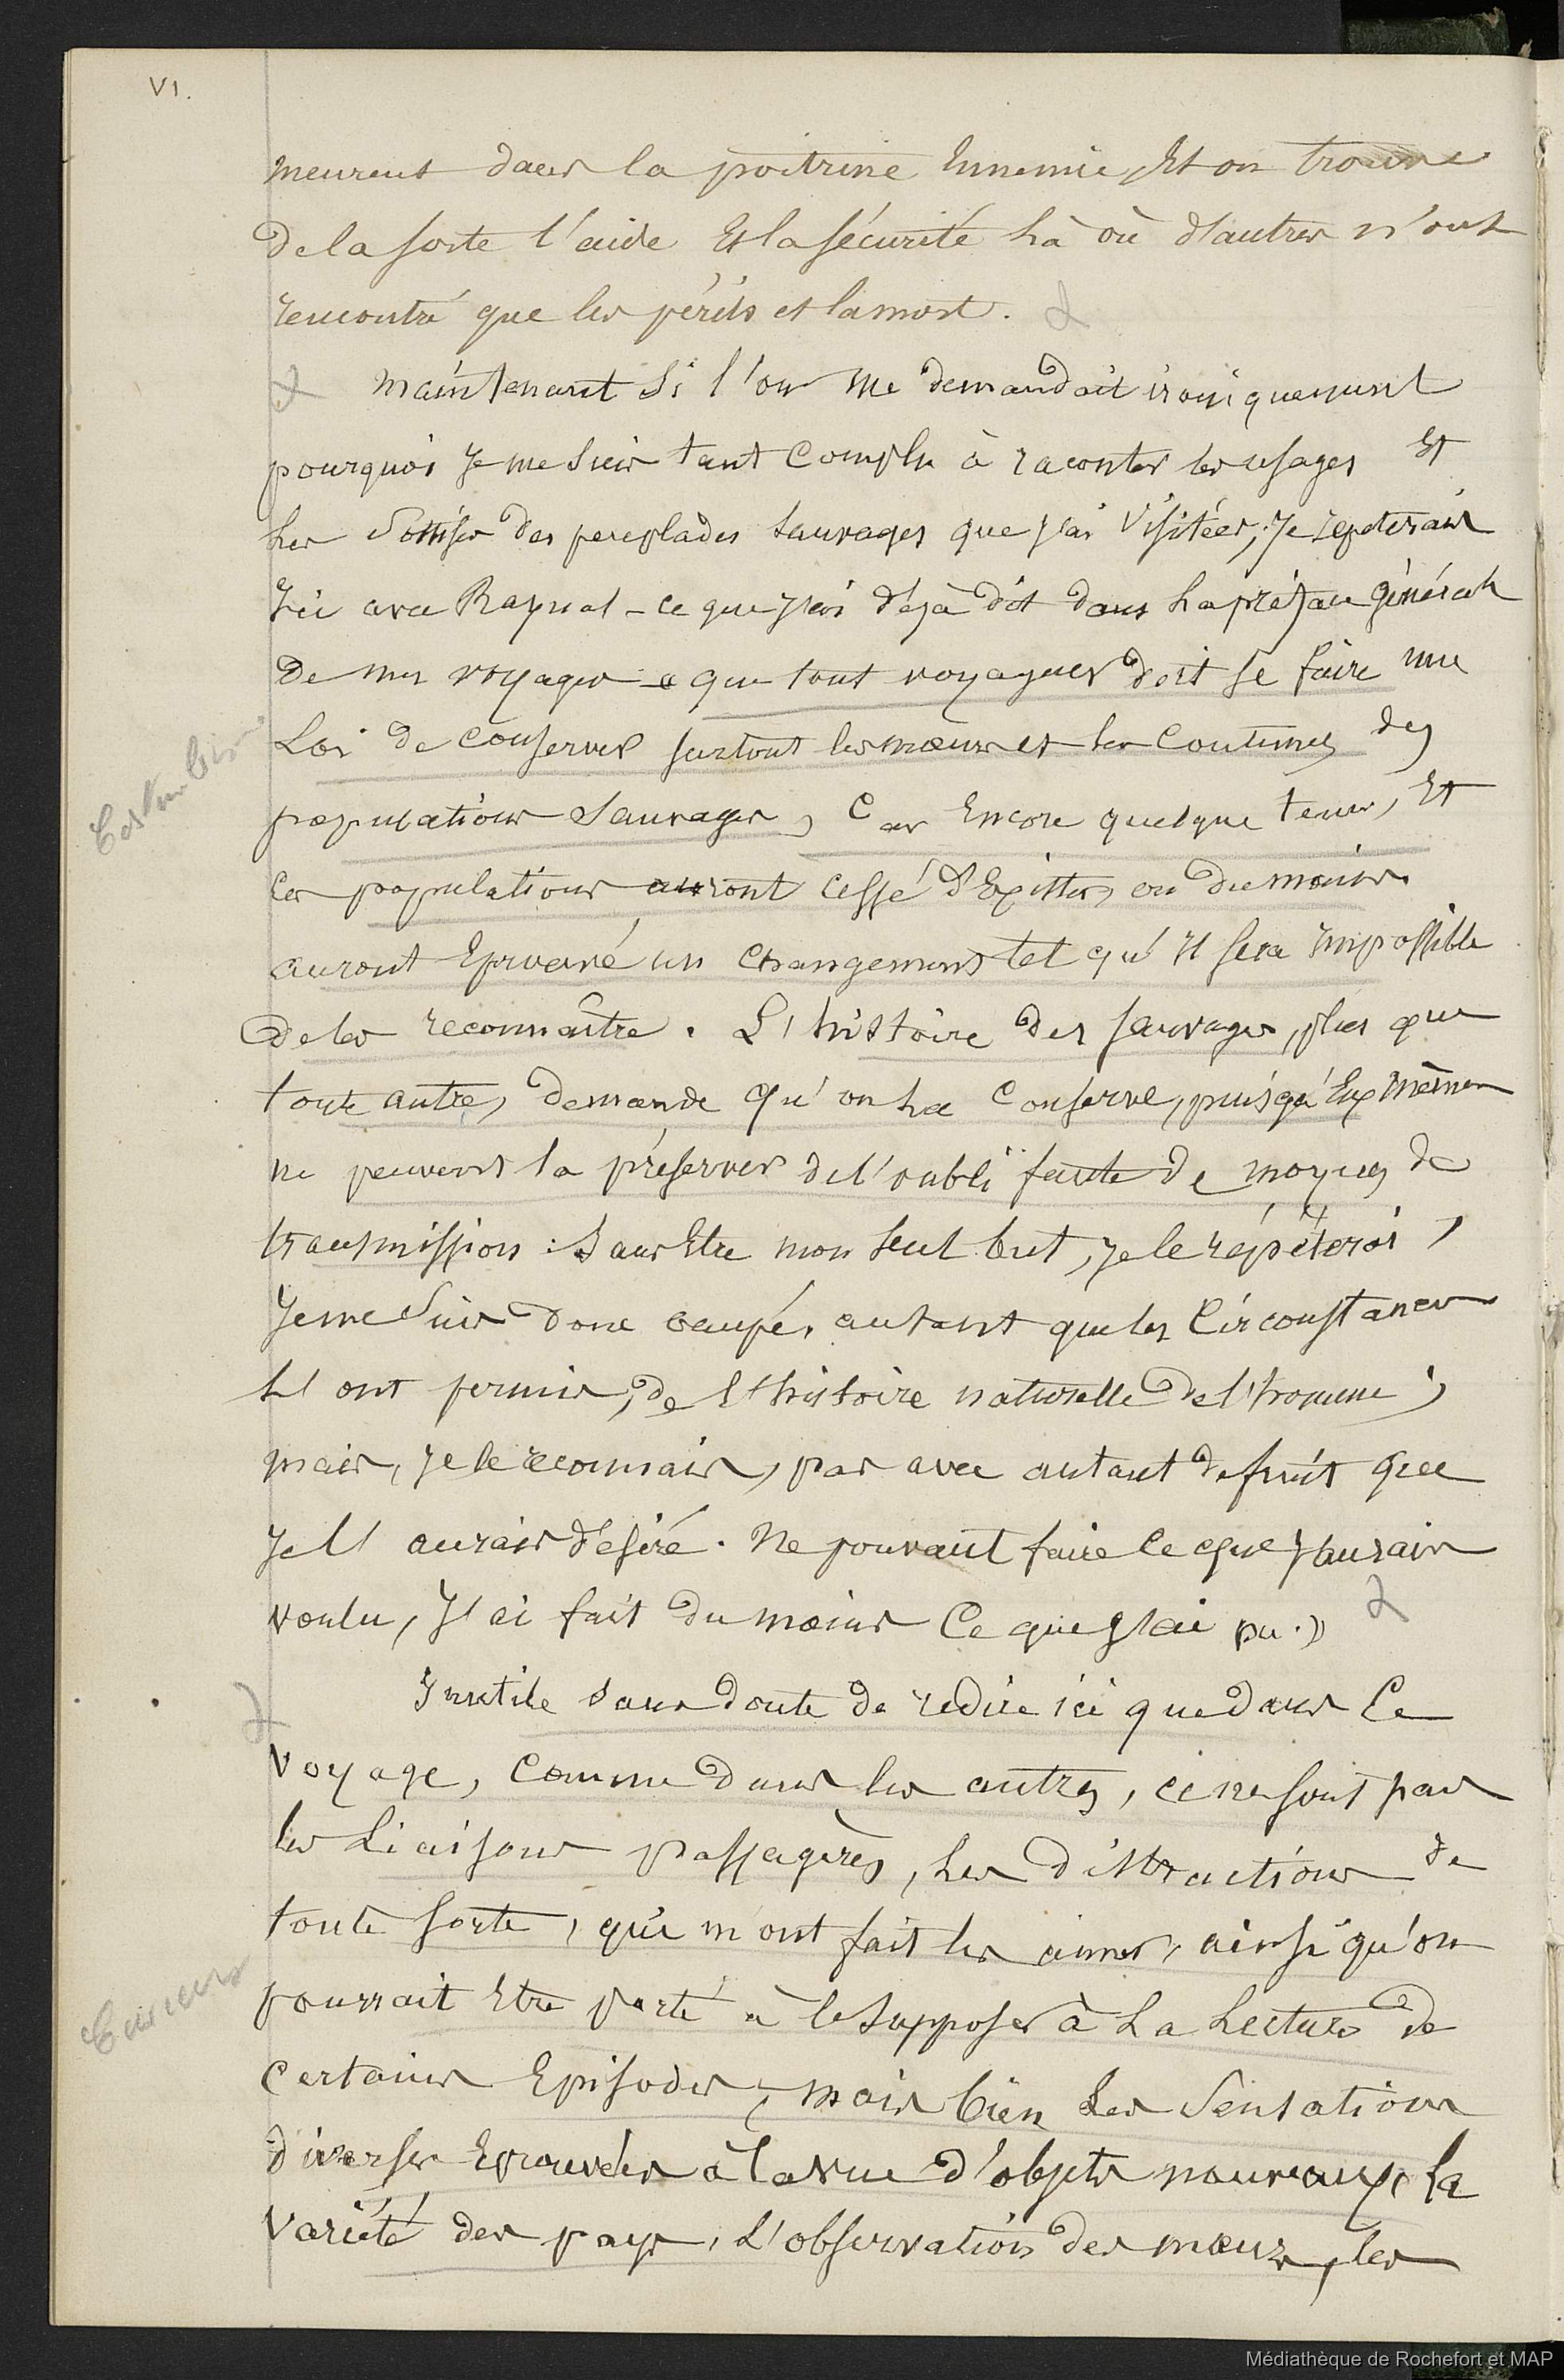 VI.
meurent dans la poitrine Ennemie, Et on trouve
de la sorte l'aide Et la sécurité là où d'autres n'ont
rencontré que les périls et la mort.
Maintenant si l'on me demandait ironiquement
pourquoi Je me suis tant complu à raconter les usages Et
les des peuplades sauvages que j'ai visitées, Je repeterais
Ici avec Raynal - ce que j'ai déjà dit dans la préface générale
de mes voyages - que tout voyageur doit se faire une
Loi de conserver surtout les mœurs et les Coutumes des
populations Sauvages, Car Encore quelque tems, Et
ces populations auront cessé d'Exister, ou du moins
auront Eprouvé un changement tel qu'il sera Impossible
de les reconnaître. L'histoire des sauvages, plus que
toute autre, demande qu'on la Conserve, puisqu'Eux mêmes
ne peuvent la préserver de l'oubli faute de moyens de
transmission : Sans Etre mon seul but, je le répéterai,
Je me suis donc occupé, autant que les Circonstances
l'ont permis, de l'histoire naturelle de l'homme,
mais, Je le reconnais, pas avec autant de fruit que
Je l'aurais désiré. Ne pouvant faire ce que J'aurais
voulu, J'ai fait du moins Ce que J'ai pu. »
Inutile sans doute de redire ici que dans Ce
Voyage, Comme dans les autres, ce ne sont pas
les Liaisons passagères, les distractions de
toute sorte, qui m'ont fait les aimer, ainsi qu'on
pourrait Etre porté à le supposer à La Lecture de
certains Episodes, mais bien Les Sensations
diverses Eprouvées à la vue d'objets nouveaux, la
Variété des pays, L'observation des mœurs, les
Médiathèque de Rochefort et MAP